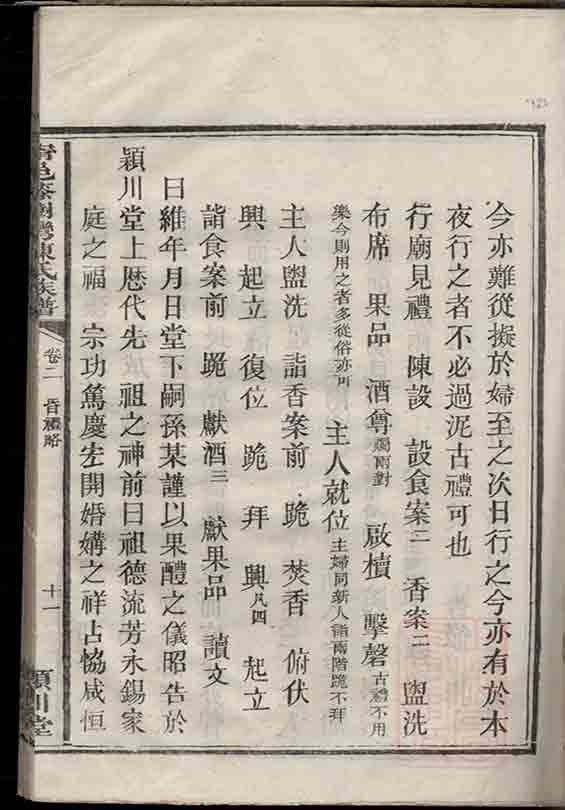 今亦難從擬於婦至之次日行之今亦有於本
夜行之者不必過泥古禮可也
行廟見禮 陳設 設食案二 香案二 盥洗
布席 果品 酒尊 燭兩對 啟櫝 擊磬 古禮不用
樂今則用之者多從俗亦可 主人就位 主婦同新人詣兩階跪不拜
主人盥洗 詣香案前 跪 焚香 俯伏
興 起立 復位 跪 拜 興 凡四 起立
詣食案前 跪 獻酒三 獻果品 讀文
曰維年月日堂下嗣孫某謹以果醴之儀昭告於
穎川堂上歷代先祖之神前曰祖德流芳永錫家
庭之福 宗功篤慶宏開婚媾之祥占恊咸恒
陳氏族譜
卷二 昏禮略
十一
穎川堂